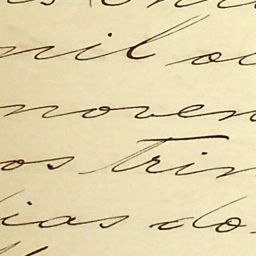 nil o
noven
os trin
ias do